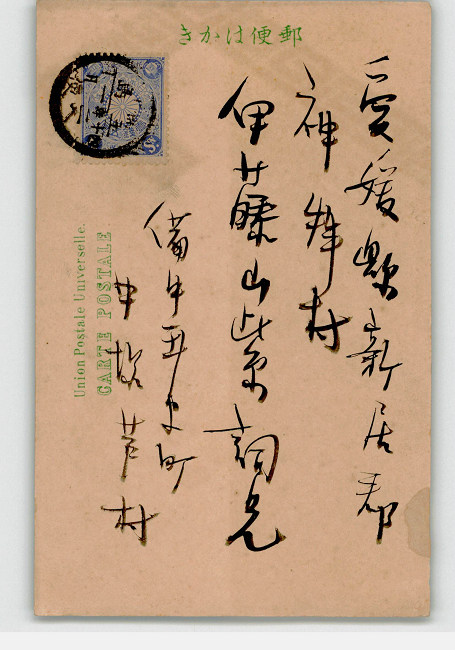 郵便はかき
愛媛縣新居郡
神郷村
伊藤山紫詞兄
備中玉島町
井上芦村
Union Postale Universelle.
CARTE POSTALE